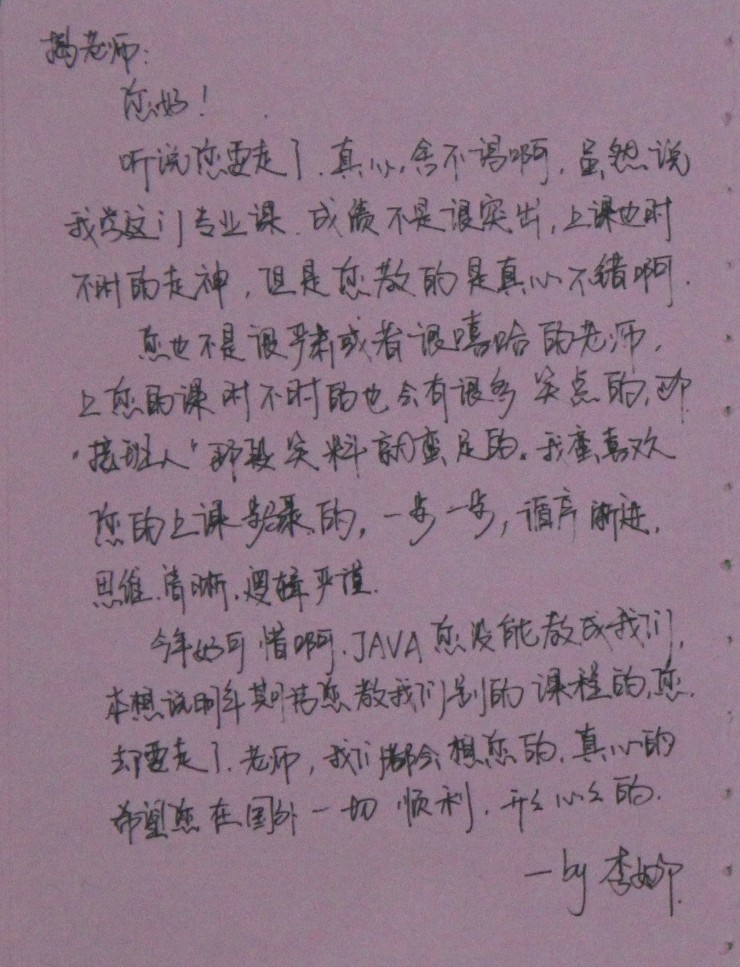 杨老师:
您好!
听说您要走了.真心舍不得啊,虽然说
我学这门专业课.成绩不是很突出,上课也时
不时的走神,但是您教的是真心不错啊.
您也不是很严肃或者很嘻哈的老师,
上您的课时不时的也会有很多笑点的,那
"接班人"那段笑料就蛮足的。我蛮喜欢
您的上课步骤的,一步一步,循序渐进,
思维清晰,逻辑严谨.
今年好可惜啊.JAVA您没能教成我们,
本想说明年期待您教我们别的课程的,您
却要走了.老师,我们都会想您的,真心的
希望您在国外一切顺利,开开心心的.
—by 李娜